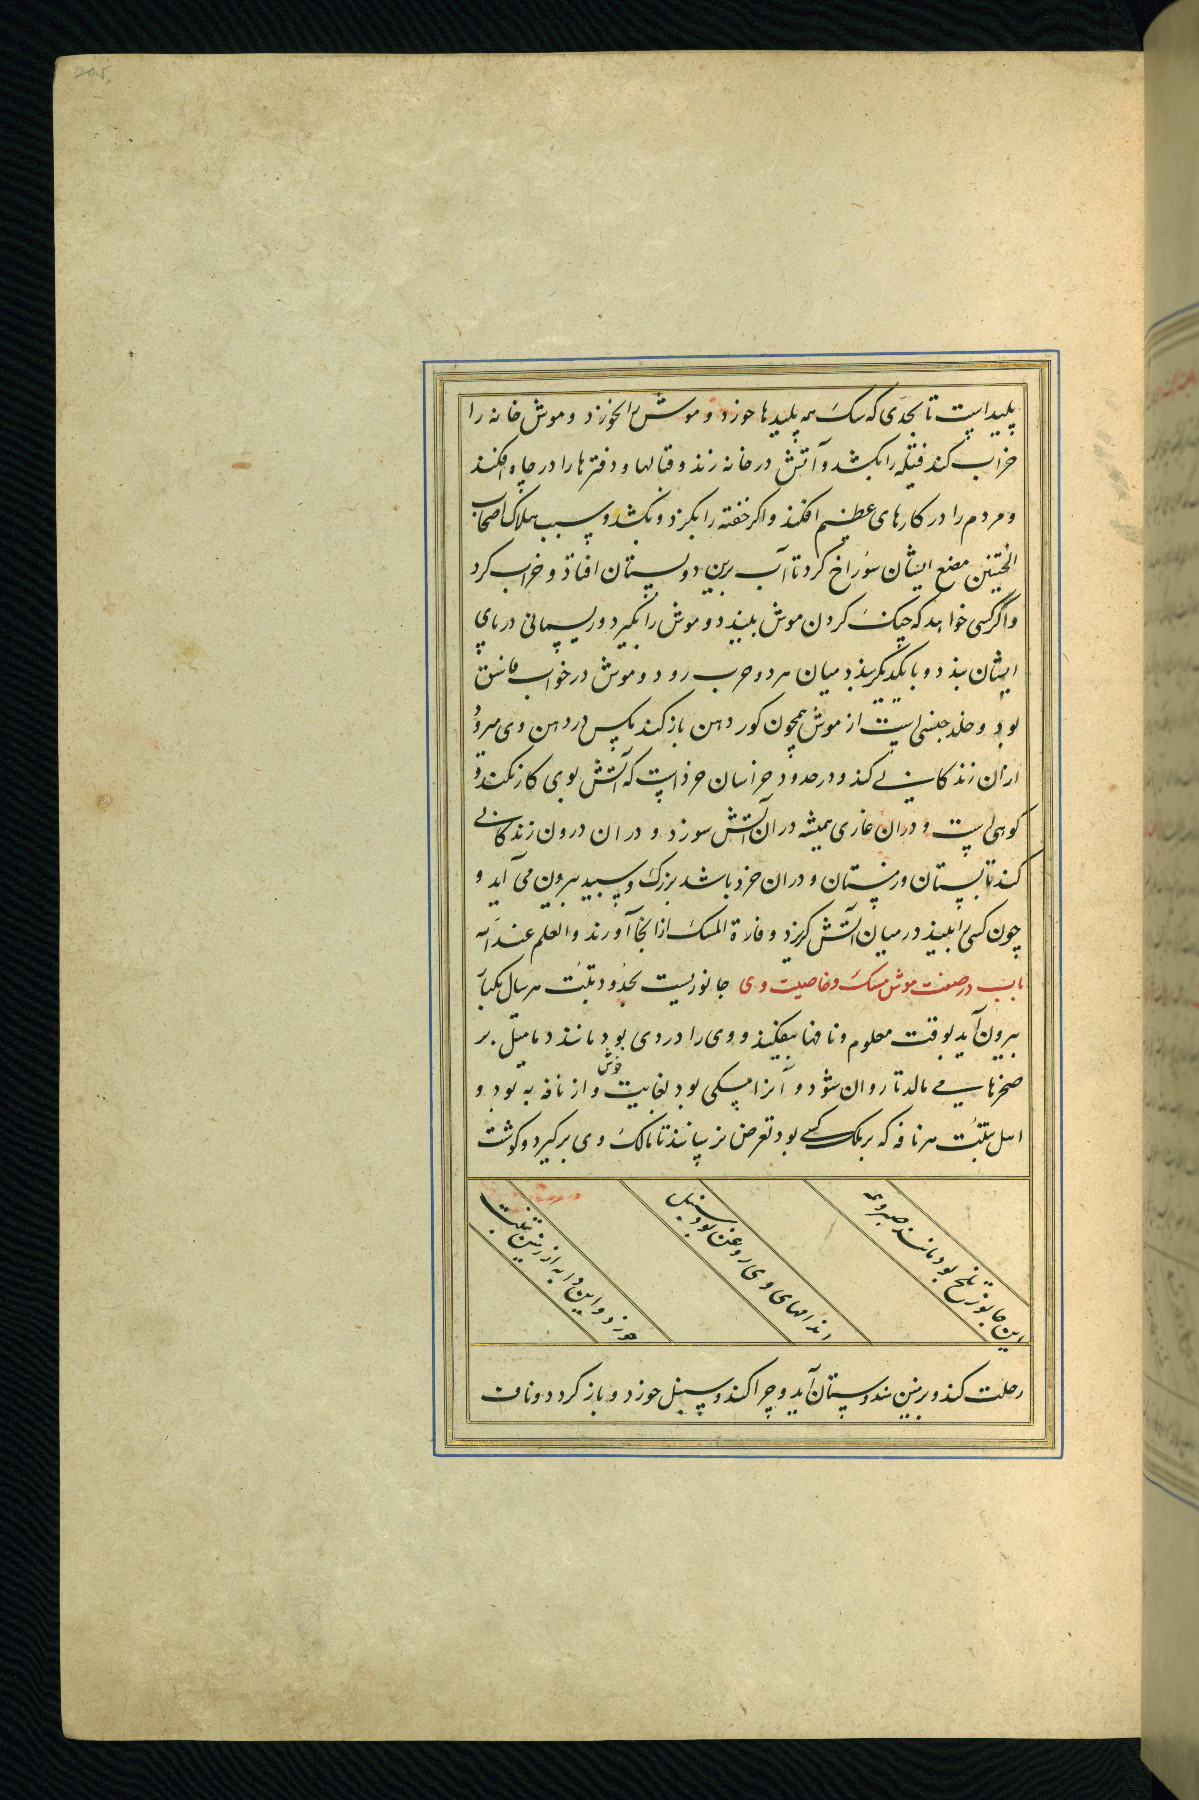 205
پلیداست تا بحدی که سک همه پلیدها خورد و موش را نخورد و موش خانه را
خراب کند فتیله را بکشد و آتش در خانه زند و قبالها و دفترها را در چاه افکند
و مردم را در کارهای عظیم افکند و اکر خفته را بکزد و بکشد و سبب هلاک اصحاب
الجنتین مصنع ایشان سوراخ کرد تا آب برین دو بستان افتاذ و خراب کرد
و اگر کسی خواهد که جنک کردن موش بیند دو موش را بگیرد و ریسمانی در پای
ایشان بندد و بایکدیکر بندد میان هر دو حرب رود و موش در خواب فاسق
بود و خلد جنسی است از موش همچون کور دهن باز کند مکس در دهن وی میرود
از ان زندکانی کند و در حدود خراسان خرذ است که آتش بوی کار نکند و
کوهی است و دران غاری همیشه در آن آتش سوزد و در ان درون زندکانی
کند تابستان و زمستان و دران خرد باشد بزرک و سپید بیرون می آید و
چون کسی را بیند در میان آتش کریزد و فارة المسک از انجا آورند والعلم عند الله
باب در صفت موش مسک و خاصیت وی جانوریست بحدود تبت هر سال یکبار
بیرون آید بوقت معلوم و نافها بیفکند و وی را دردی بود مانند دمامیل بر
صخرها می مالد تا روان شود و آنرا مسکی بود بغایت خوش و از نافه به بود و
اهل تبت هر نافه که بر ملک کسی بود تعرض نرسانند تا مالک وی برکیرد و کوشت
این جانور تلخ بود مانند صبر و همه
اندامهای وی روغن بود سنبل
خورد و این دابه از زمین تبت
رحلت کند و بزمین هندوستان آید و چرا کند و سنبل خورد و باز کردد و نافت